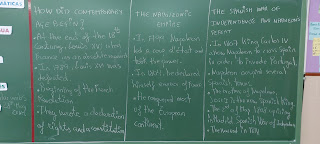 HOW DID CONTEMPORARY
AGE BEGIN?
• At the end of the 18th
century, Louis XVI
France as an absolute monarch
• In 1789, Louis XVI was
deposed
• Beginning of the French
Revolution
• They wrote a declaration
of rights and a constitution
THE NAPOLEONIC
EMPIRE
• In 1799 Napoleon
led a coup d'etat and
took the power.
• In 1804 he declared
himself emperor of France
• He conquered most
of the European
continent.
THE SPANISH WAR OF
INDEPENDENCE AND NAPOLEON'S
DEFEAT
• In 1807 King Carlos IV
allow Napoleon to cross Spain
in order to invade Portugal.
• Napoleon invaded several
Spanish towns.
• The brother of Napoleon,
José I is the new Spanish King.
• The 2nd of May 1808 uprising
in Madrid. Spanish War of Independence
• The war end in 1814